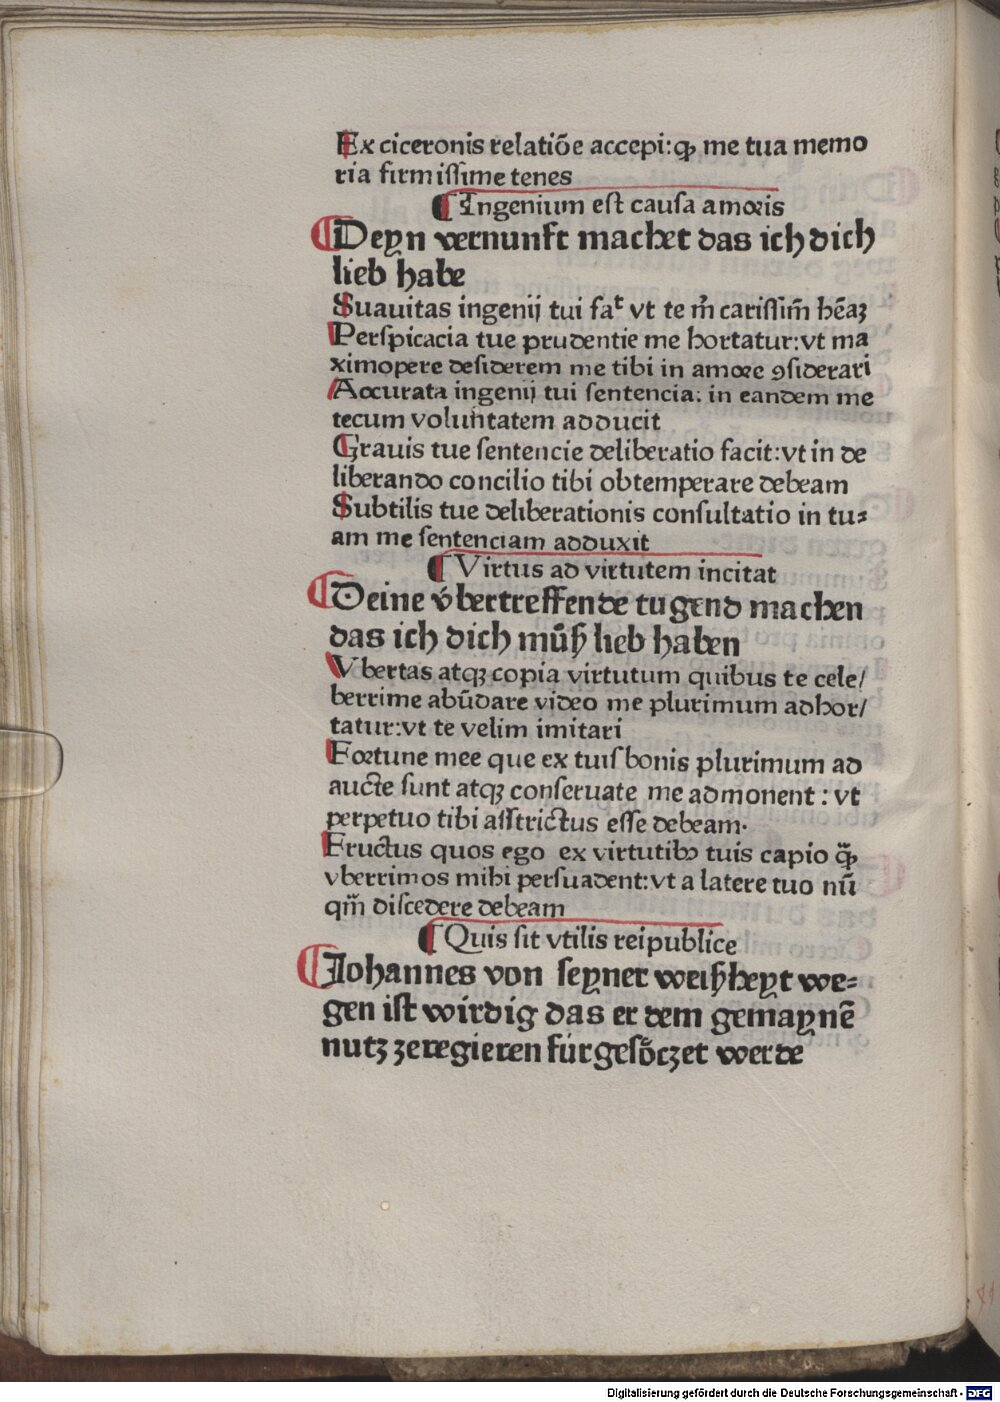 Ex ciceronis relatiōe accepi:ꝙ me tua memo
ria firmiſſime tenes
¶ Ingenium eſt cauſa amoꝛis
¶ Deyn vernunft machet das ich dich
lieb habe
Suauitas ingenij tui fat̉ vt te m̄ cariſſim̄ hēaꝫ
Perſpicacia tue prudentie me hortatur:vt ma
ximopere deſiderem me tibi in amoꝛe ꝯſiderari
Accurata ingenij tui ſentencia: in eandem me
tecum voluntatem adducit
Grauis tue ſentencie deliberatio facit:vt in de
liberando concilio tibi obtemperare debeam
Subtilis tue deliberationis conſultatio in tu⸗
am me ſentenciam adduxit
¶ Virtus ad virtutem incitat
¶ Deine v̈bertreffende tugend machen
das ich dich müß lieb haben
Vbertas atqꝫ copia virtutum quibus te cele/
berrime abūdare video me plurimum adhor/
tatur:vt te velim imitari
Foꝛtune mee que ex tuiſ bonis plurimum ad
aucte ſunt atqꝫ conſeruate me admonent : vt
perpetuo tibi aſſtrictus eſſe debeam.
Fructus quos ego ex virtutibꝫ tuis capio ꝙ̄
vberrimos mihi perſuadent:vt a latere tuo nū
qm̄ diſcedere debeam
¶ Quis ſit vtilis reipublice
¶ Johannes von ſeyner weißheyt we⸗
gen iſt wirdig das er dem gemaynē
nutz zeregieren fürgeſöczet werde
Digitalisierung gefördert durch die Deutsche Forschungsgemeinschaft - DFG